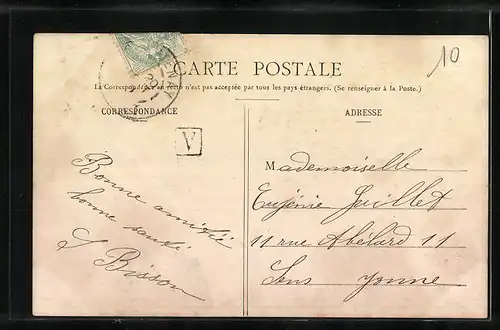 10
CARTE POSTALE
La Correspondance au recto n'est pas acceptée par tous les pays étrangers. (Se renseigner à la Poste.)
CORRESPONDANCE
ADRESSE
V
Bonne amitié
bonne santé
Bisson
Mademoiselle
Eugénie Juillet
11 rue Abélard 11
Sens Yonne